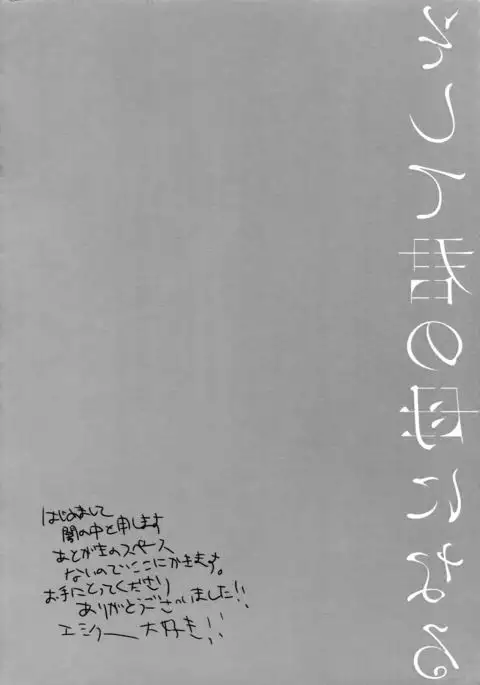 そして君の母になる
はじめまして
闇の中と申します
あとがきのスペース
ないのでここにかきます。
お手にとってくださり
ありがとうございました!!
エミクー大好き!!